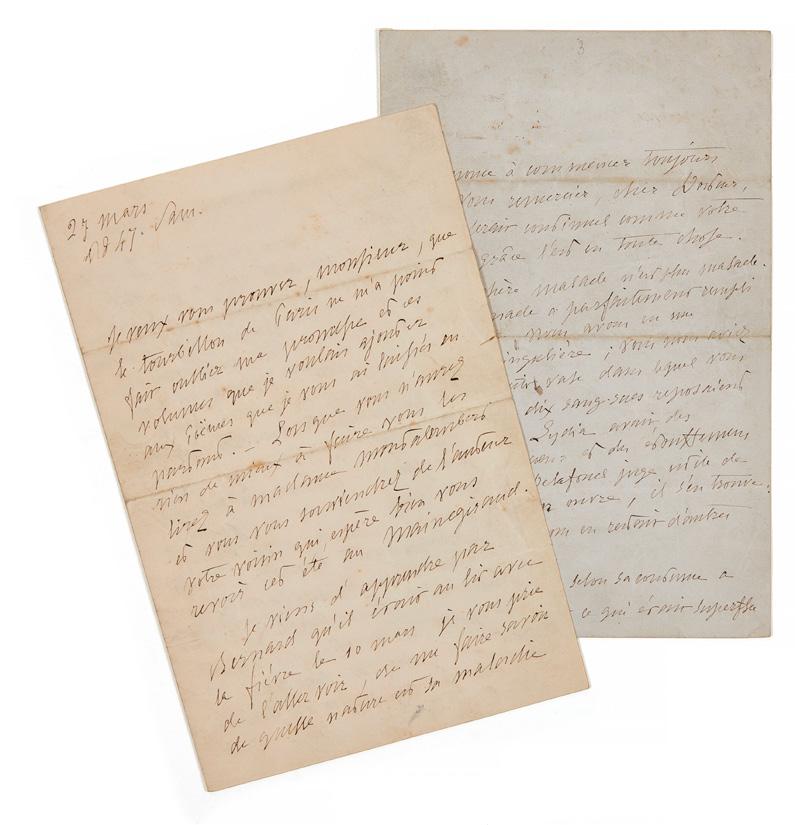 27 mars
1847. Sam.
Je veux vous prouver, monsieur, que
le tourbillon de Paris ne m'a point
fait oublier ma promesse et ces
volumes que je voulais ajouter
aux Poëmes que je vous ai laissés en
partant. – Lorsque vous n'aurez
rien de mieux à faire vous les
lirez à madame Montalembert
et vous vous souviendrez de l'auteur
votre voisin qui espère bien vous
revoir cet été au Mainegiraud.
Je viens d'apprendre par
Bernard qu'il était au lit avec
la fièvre le 10 mars je vous prie
de l'aller voir, de me faire savoir
de quelle nature est sa maladie
3
à commencer toujours
vous remercier, cher Docteur,
serait continuel comme votre
grâce l'est en toute chose.
malade n'est plus malade.
a parfaitement rempli
nous avons eu un
; vous nous aviez
vase dans lequel vous
dix sang-sues reposaient
Lydia avait des
et des étouffemens
juge utile de
ouvre, il s'en trouve
en retenir d'autres
selon sa coutume a
ce qui était superflu